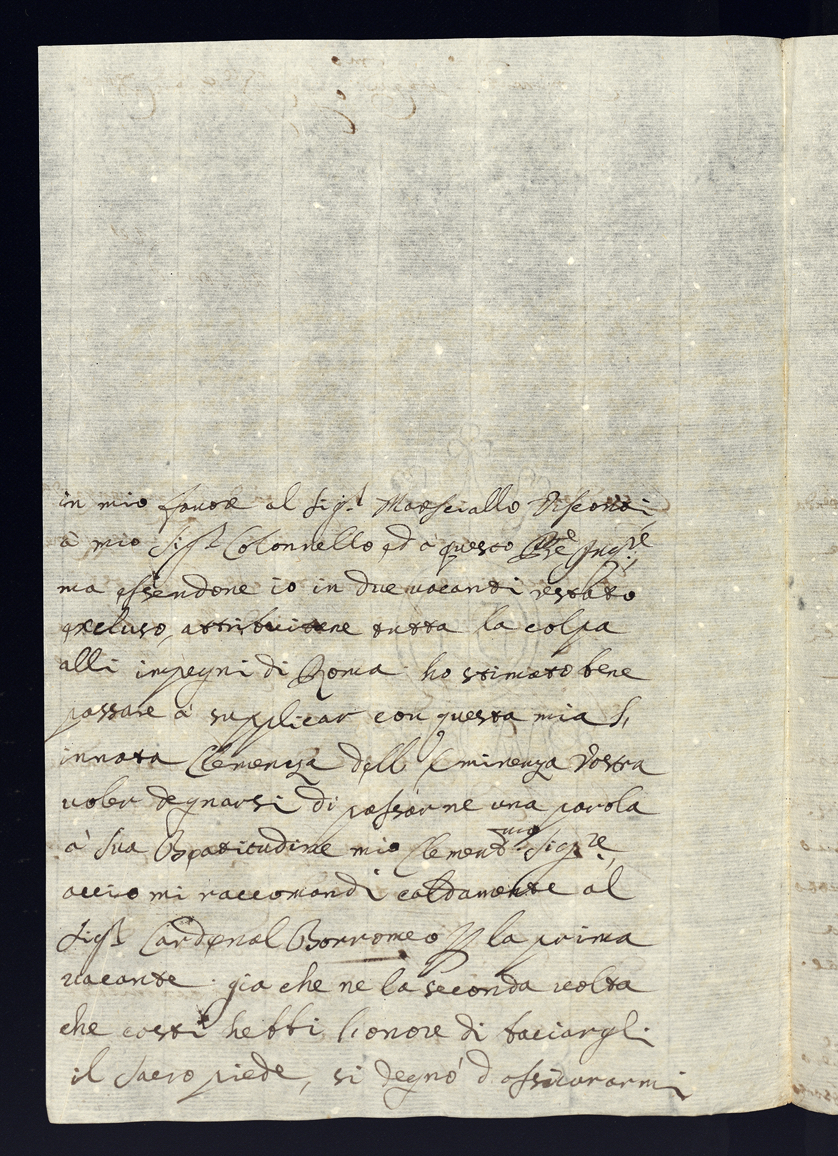 in mio favore al Sig.r Maresciallo Visconti
à mio Sig.r Colonnello ed a questo
ma essendone io in due vacanti restato
excluso, attribuitone tutta la colpa
alli impegni di Roma ho stimato bene
passare à supplicar con questa mia l'
innata Clemenza dell Eminenza Vostra
voler degnarsi di passarne una parola
à Sua Beatitudine mio Clement.mo Sig.re,
accio mi raccomandi caldamente al
Sig.r Cardenal Borromeo p la prima
vacante. gia che ne la seconda volta
che costi hebbi l'onore di baciargli
il Sacro piede, si degnò d assicurarmi